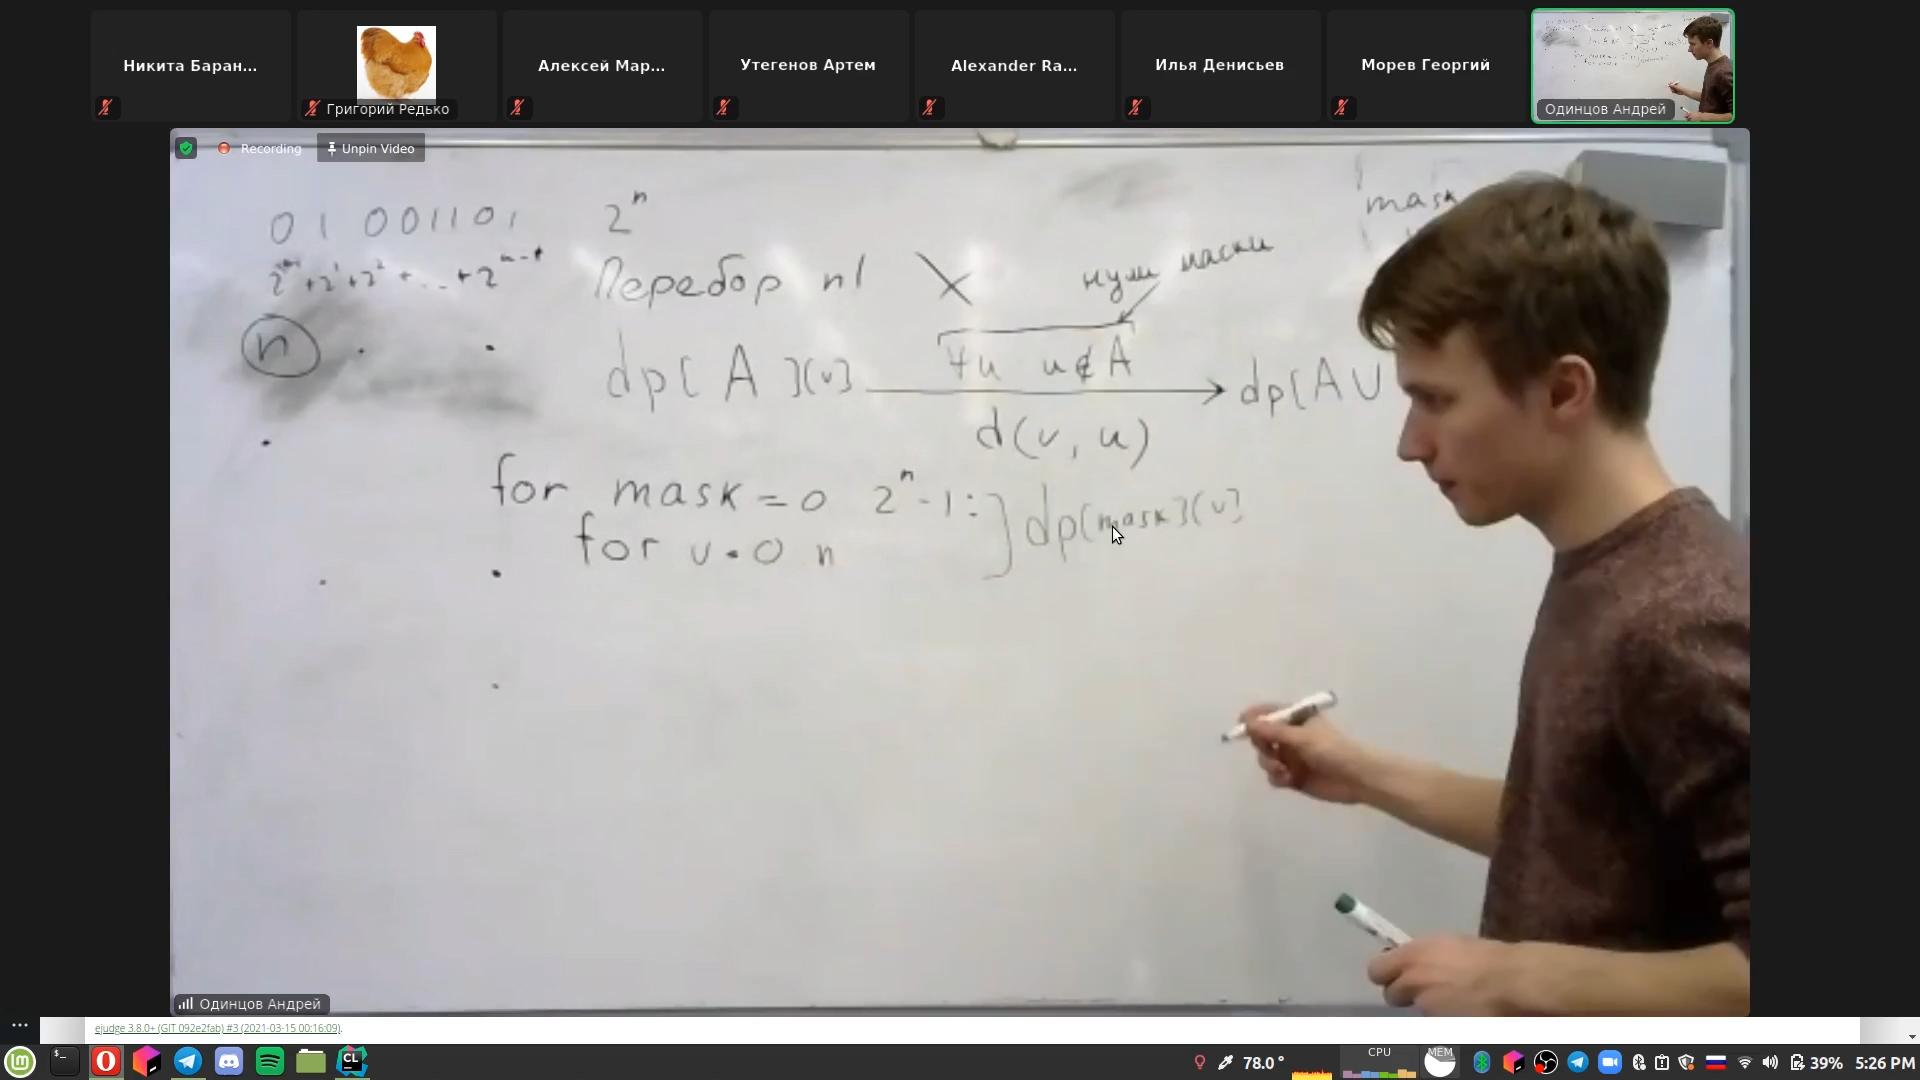 Никита Баран...
Григорий Редько
Алексей Мар...
Утегенов Артем
Alexander Ra...
Илья Денисьев
Морев Георгий
Одинцов Андрей
Recording
Unpin Video
0 1 001101 2^n
mask
+2^1+2^2+...+2^{n-1}
Перебор n!
нули маски
n
dp[A][v] ∀u u∉A → dp[A∪
d(v, u)
for mask=0 2^n-1: ] dp[mask][v]
for v=0 n
Одинцов Андрей
ejudge 3.8.0+ (GIT 092e2fab) #3 (2021-03-15 00:16:09).
CL
78.0°
CPU
MEM
39%
5:26 PM